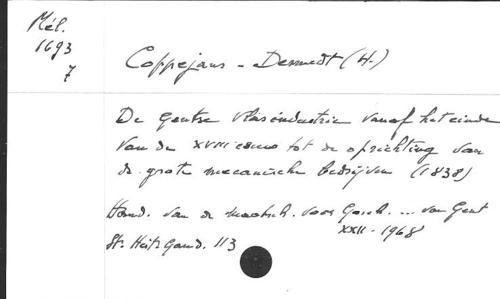 Mél.
1693
7
Coppejans - Desmedt (H.)
De Gentse vlasindustrie vanaf het einde
van de XVIIIe eeuw tot de oprichting van
de grote mecanische bedrijven (1838)
Hand. van de Maatsch. voor Gesch. ... van Gent
XXII - 1968
113